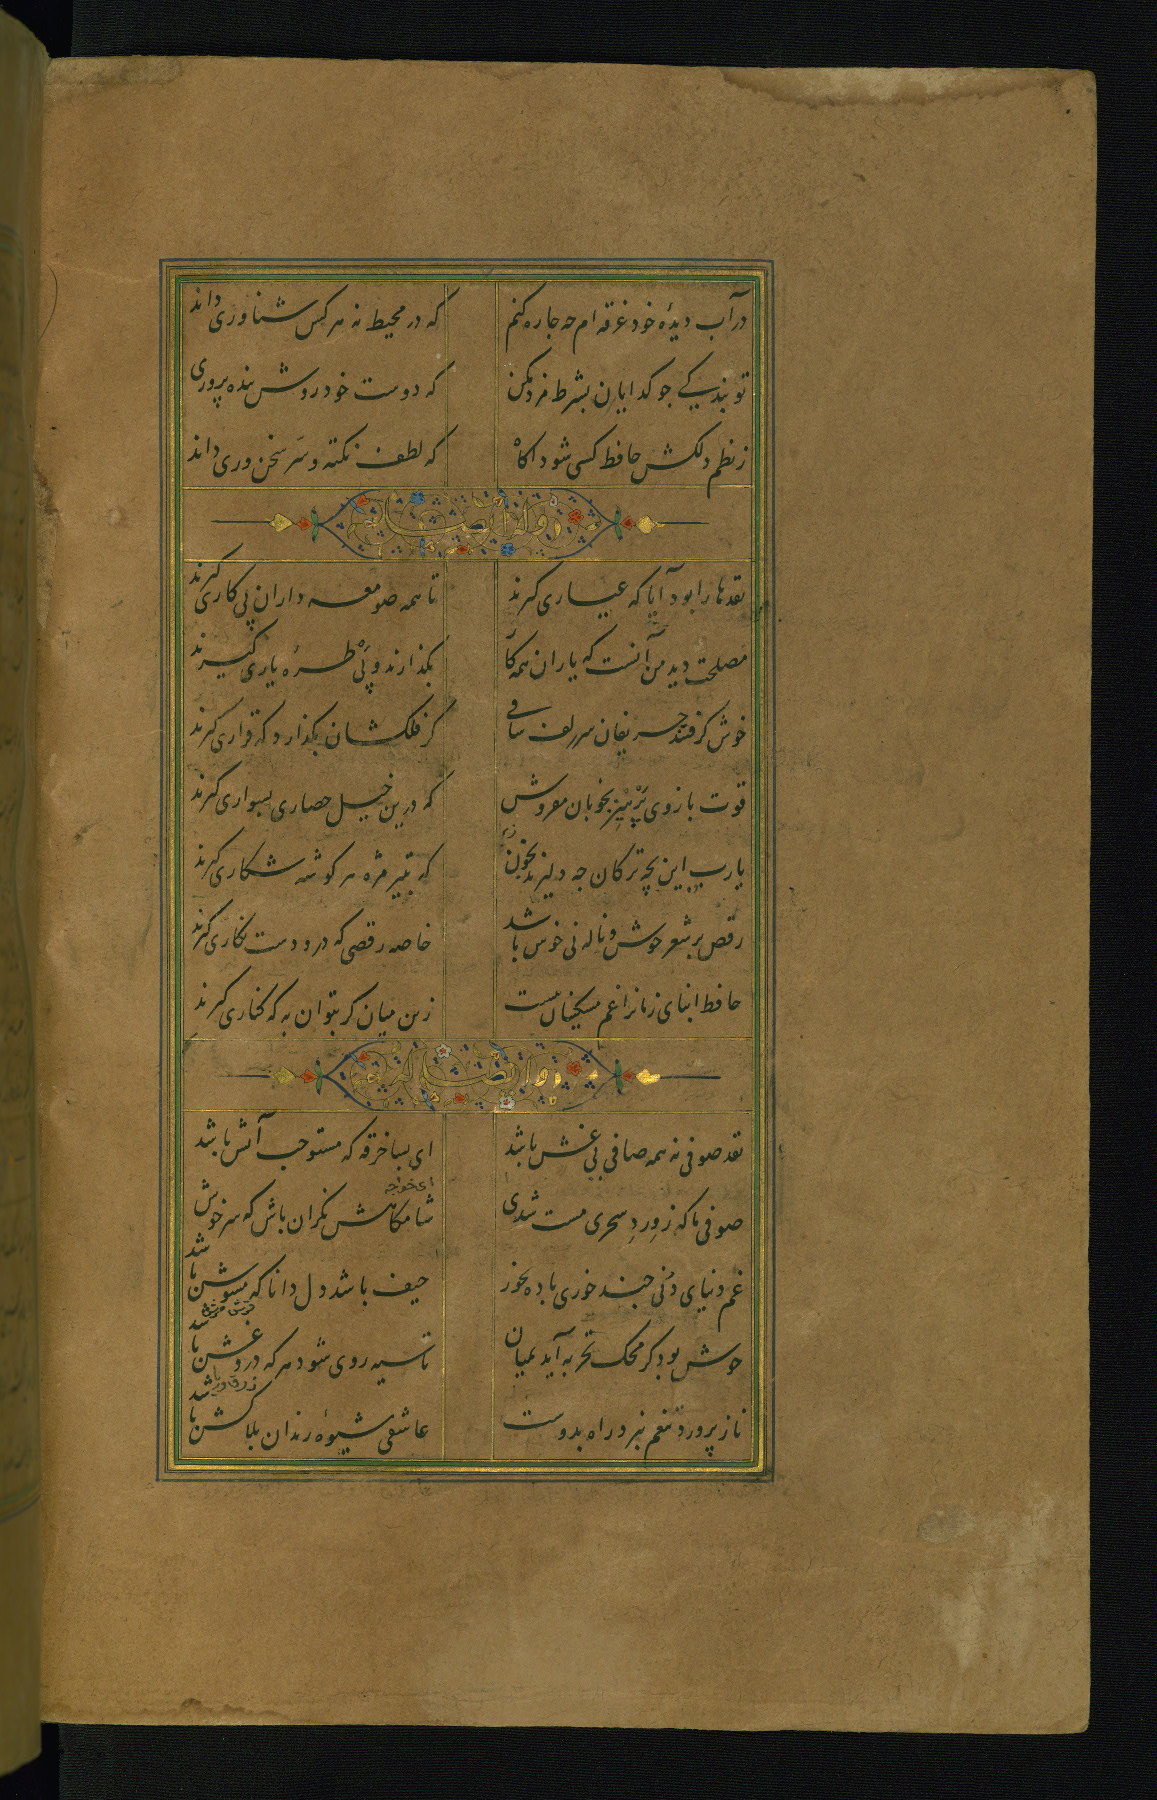 در آب دیدهٔ خود غرقه ام چه چاره کنم که در محیط نه هر کس شناوری داند
تو بندکی چو کدایان بشرط مزد مکن که دوست خود روش بنده پروری
ز نظم دلکش حافظ کسی شود اکاه که لطف نکته و سر سخن وری داند
وله ایضا
نقدها را بود آیا که عیاری کیرند تا همه صومعه داران پی کاری کیرند
مصلحت دید من آنست که یاران همه کار بکذارند و پی طرهٔ یاری کیرند
خوش کرفتند حریفان سر زلف ساقی کر فلکشان بکذارد که قراری کیرند
قوت بازوی پرهیز بخوبان مفروش که درین خیل حصاری بسواری کیرند
یا رب این بچه ترکان چه دلیرند بخون که بتیر مژه هر کوشه شکاری کیرند
رقص بر شعر خوش و ناله نی خوش باشد خاصه رقصی که درو دست نکاری کیرند
حافظ ابنای زمانرا غم مسکینان نیست زین میان کر بتوان به که کناری کیرند
وله ایضا
نقد صوفی نه همه صافی بی غش باشد ای بسا خرقه که مستوجب آتش باشد
صوفی ما که ز ورد سحری مست شدی شامکاهش نکران باش که سر خوش باشد
غم دنیای دنی چند خوری باده بخور حیف باشد دل دانا که مشوش باشد
خوش بود کر محک تجربه آید بمیان تا سیه روی شود هر که درو غش باشد
ناز پرورد تنعم نبرد راه بدوست عاشقی شیوهٔ رندان بلاکش باشد